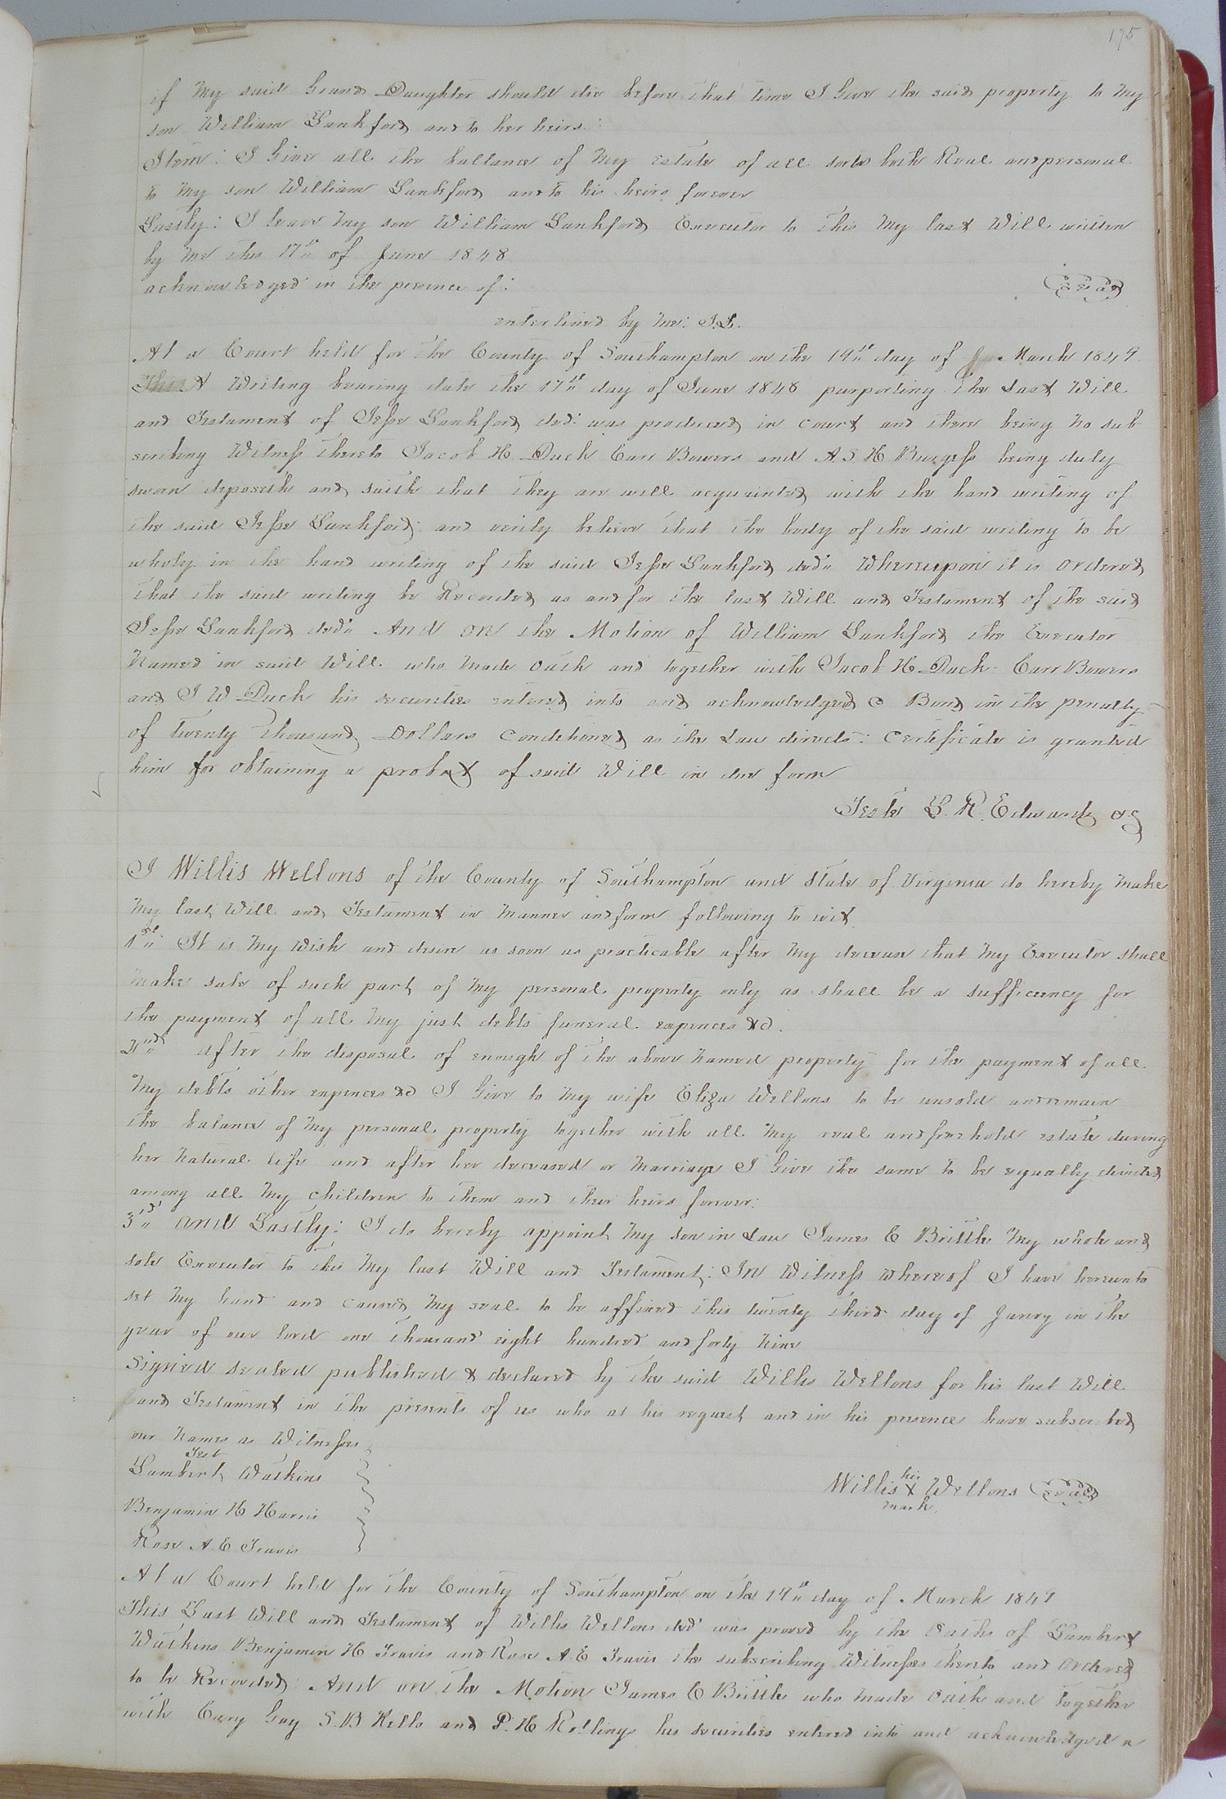 175
if My said Grand Daughter should die before that time I Give the said property to My
son William Lankford and to her heirs.
Item: I Give all the ballance of My estate of all sorts both Real and personal
to My son William Lankford and to his heirs forever
Lastly: I leave My son William Lankford Executor to this My last Will written
by me this 17th of June 1848
acknowledged in the presence of: Seal
enterlined by me: J.L.
At a Court held for the County of Southampton on the 19th day of March 1849
This Writing bearing date the 17th day of June 1848 purporting the Last Will
and Testament of Jesse Lankford decd: was produced in court and there being No sub
scribing Witness thereto Jacob H Duck Carr Bowers and A S H Burgess being duly
sworn deposeth and saith that they are well acquainted with the hand writing of
the said Jesse Lankford and verily believe that the body of the said writing to be
wholy in the hand writing of the said Jesse Lankford decd Whereupon it is ordered
that the said writing be Recorded as and for the last Will and Testament of the said
Jesse Lankford decd And on the Motion of William Lankford the Executor
Named in said Will who Made oath and together with Jacob H Duck Carr Bowers
and J W Duck his securities entered into and acknowledged a Bond in the penalty
of twenty thousand Dollars Condetioned as the Law directs: certificate is granted
him for obtaining a probat of said Will in due form
Teste L. R. Edwards cs
I Willis Wellons of the County of Southampton and State of Virginia do hereby Make
My last Will and Testament in Manner and form following to wit
1st It is My wish and desire as soon as practicable after My decease that My Executor shall
make sale of such part of My personal property only as shall be a sufficiency for
the payment of all My just debts funeral expences &c.
2nd After the disposal of enough of the above Named property for the payment of all
My debts other expences &c I Give to My wife Eliza Wellons to be unsold and remain
the balance of My personal property together with all My real and freehold estate during
her Natural life and after her deceased or Marriage I Give the same to be equally divided
among all My children to them and their heirs forever:
3rd and Lastly: I do hereby appoint My Son in Law James C Brittle My whole and
sole Executor to this My last Will and Testament: In Witness whereof I have hereunto
set My hand and caused My seal to be affixed this twenty third day of Janry in the
year of our lord one thousand eight hundred and forty Nine
Signed sealed published & declared by the said Willis Wellons for his last Will
and Testament in the presents of us who at his request and in his presence have subscribed
our Names as Witnesses
Test
Lambert Watkins
his
Willis X Wellons Seal
mark
Benjamin H Harris
Rose A E Travis
At a Court held for the County of Southampton on the 19th day of March 1849
This Last Will and Testament of Willis Wellons decd was proved by the Oaths of Lambert
Watkins Benjamin H Travis and Rose A E Travis the subscribing Witnesses thereto and Ordered
to be Recorded And on the Motion James C Brittle who made Oath and together
with Cary Gay S. B Kello and P. H Rolling his securities entered into and acknowledged a